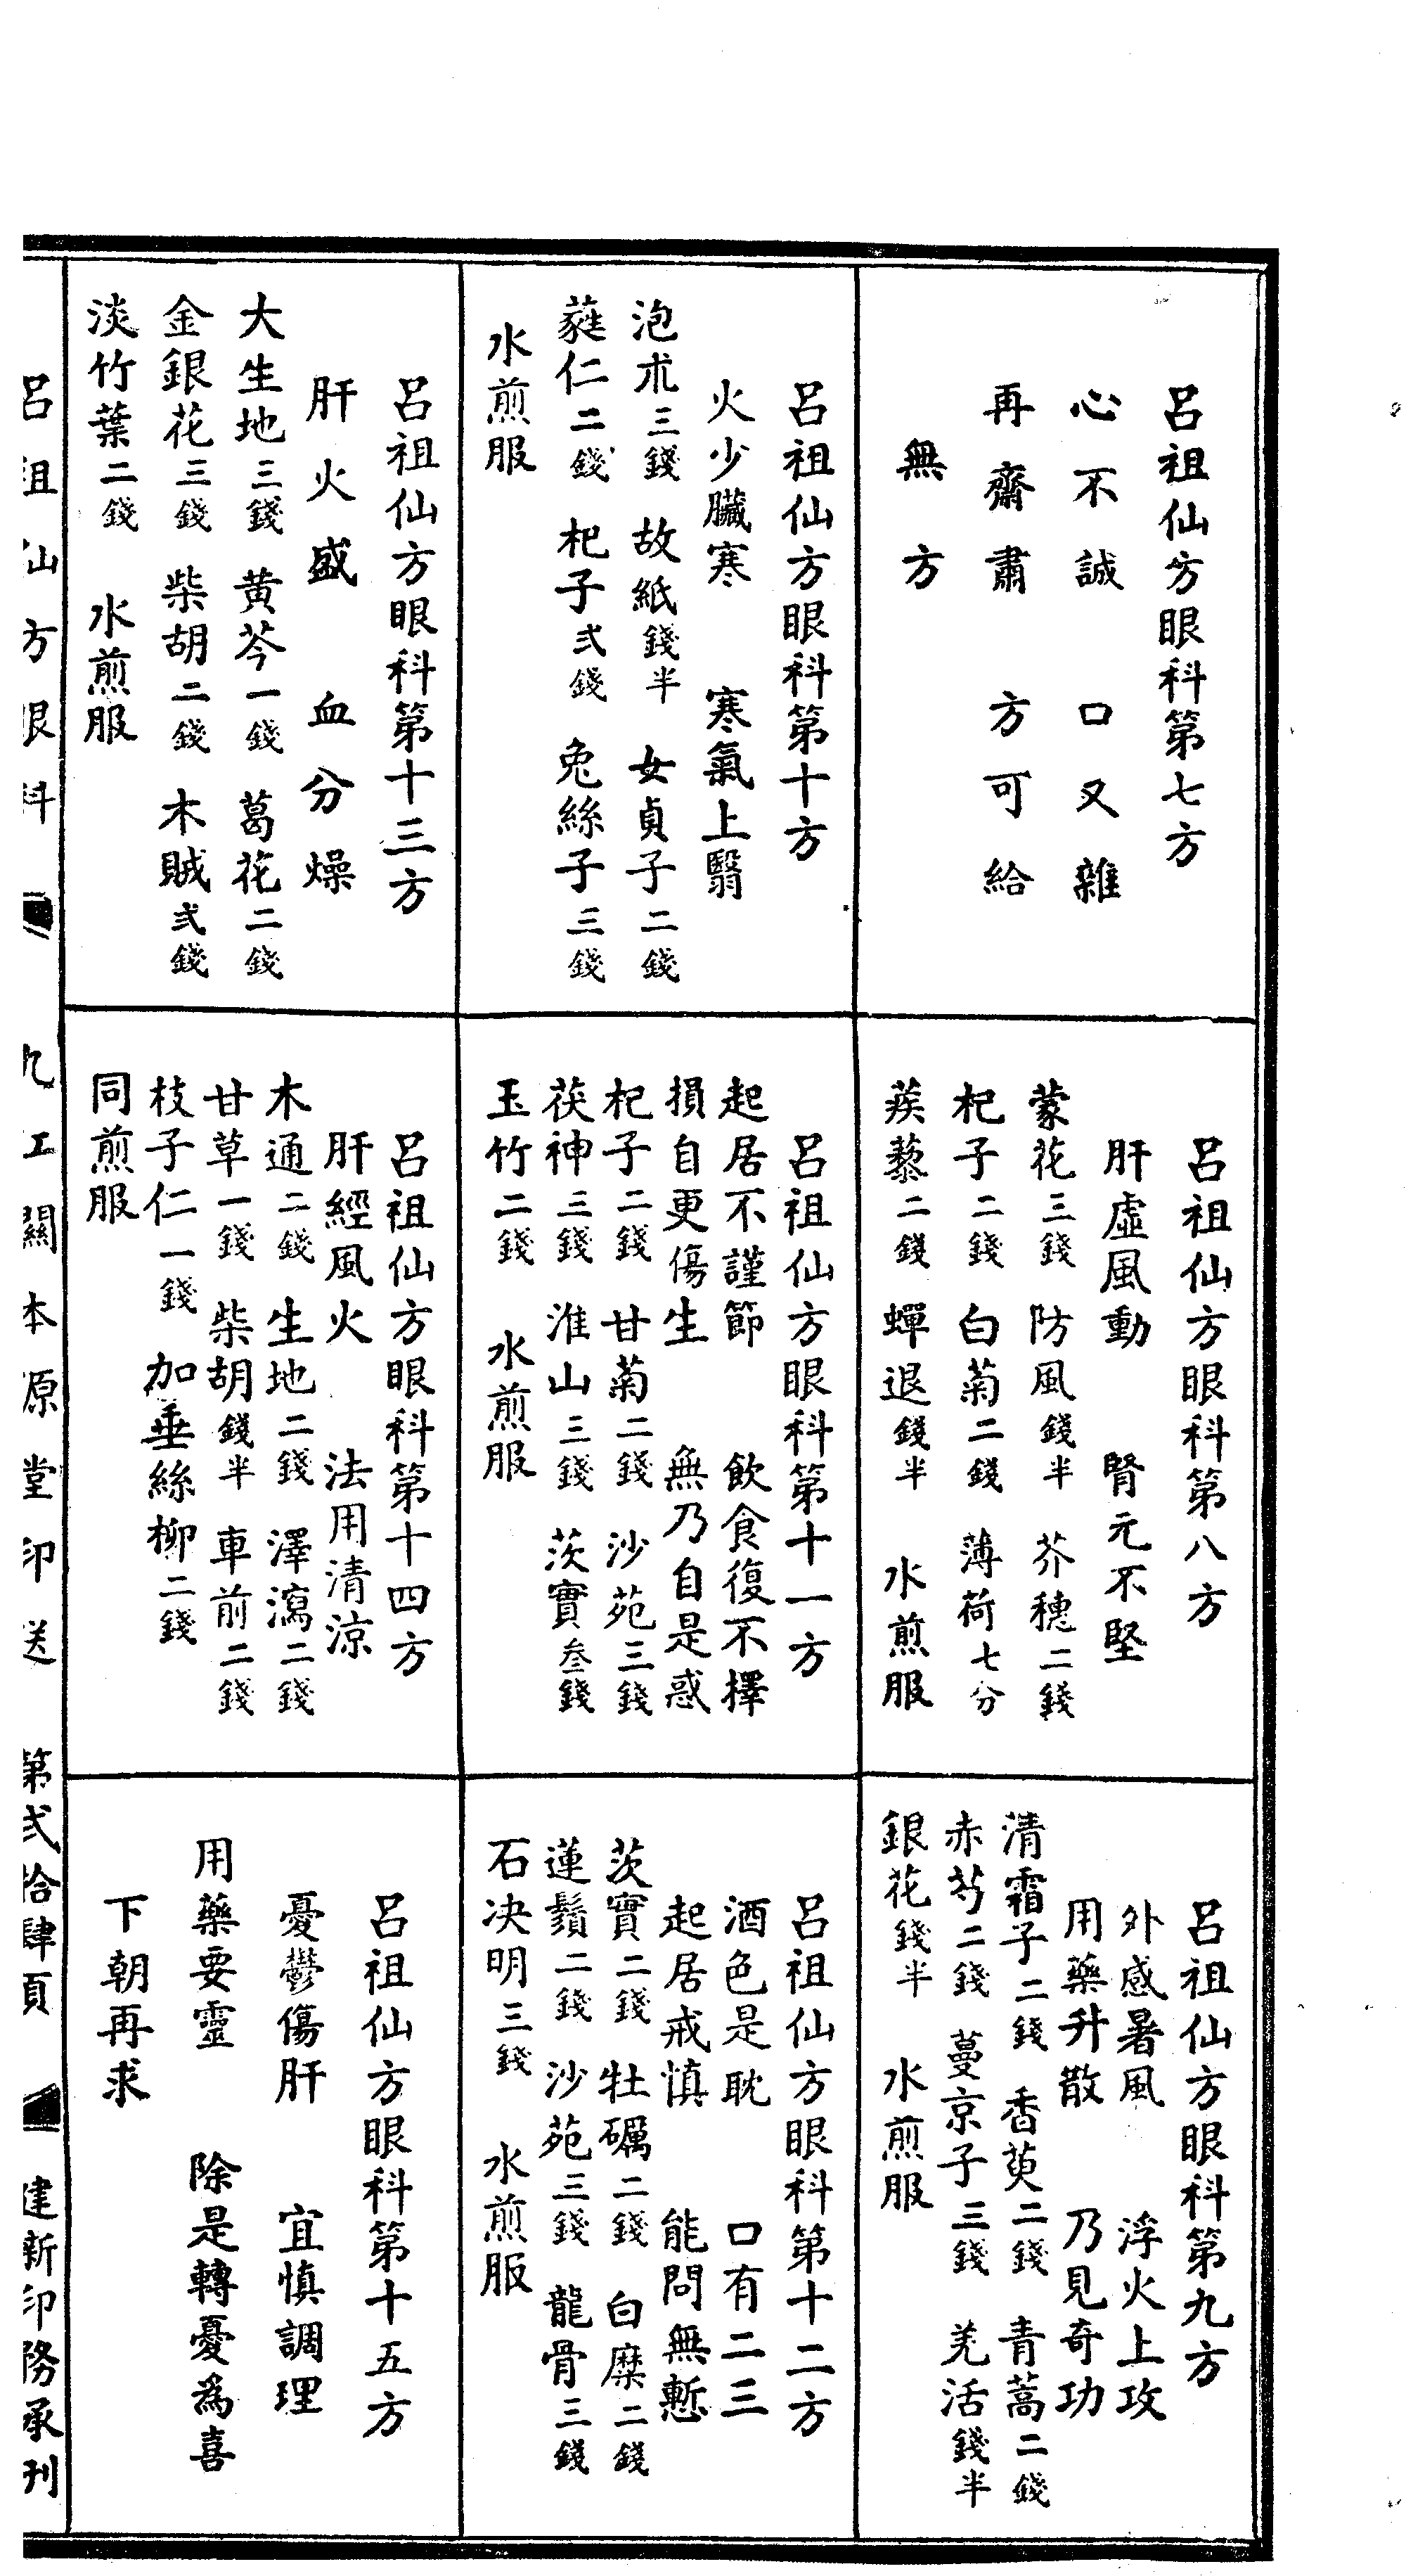 呂祖仙方眼科第七方
心不誠　口又雜
再齋肅　方可給
無方
呂祖仙方眼科第八方
肝虛風動　腎元不堅
蒙花三錢　防風錢半　芥穗二錢
杞子二錢　白菊二錢　薄荷七分
蒺藜二錢　蟬退錢半　水煎服
呂祖仙方眼科第九方
外感暑風　浮火上攻
用藥升散　乃見奇功
清霜子二錢　香茰二錢　青蒿二錢
赤芍二錢　蔓京子三錢　羌活錢半
銀花錢半　水煎服
呂祖仙方眼科第十方
火少臟寒　寒氣上翳
泡朮三錢　故紙錢半　女貞子二錢
蕤仁二錢　杞子弍錢　兔絲子三錢
水煎服
呂祖仙方眼科第十一方
起居不謹節　飲食復不擇
損自更傷生　無乃自是惑
杞子二錢　甘菊二錢　沙苑三錢
茯神三錢　淮山三錢　茨實叁錢
玉竹二錢　水煎服
呂祖仙方眼科第十二方
酒色是耽　口有二三
起居戒慎　能問無慙
茨實二錢　牡礪二錢　白糜二錢
蓮鬚二錢　沙苑三錢　龍骨三錢
石决明三錢　水煎服
呂祖仙方眼科第十三方
肝火盛　血分燥
大生地三錢　黄芩一錢　葛花二錢
金銀花三錢　柴胡二錢　木賊弍錢
淡竹葉二錢　水煎服
呂祖仙方眼科第十四方
肝經風火　法用清涼
木通二錢　生地二錢　澤瀉二錢
甘草一錢　柴胡錢半　車前二錢
枝子仁一錢　加垂絲柳二錢
同煎服
呂祖仙方眼科第十五方
憂鬱傷肝　宜慎調理
用藥要靈　除是轉憂為喜
下朝再求
呂祖仙方眼科　九江關本源堂印送　第弍拾肆頁　建新印務承刊